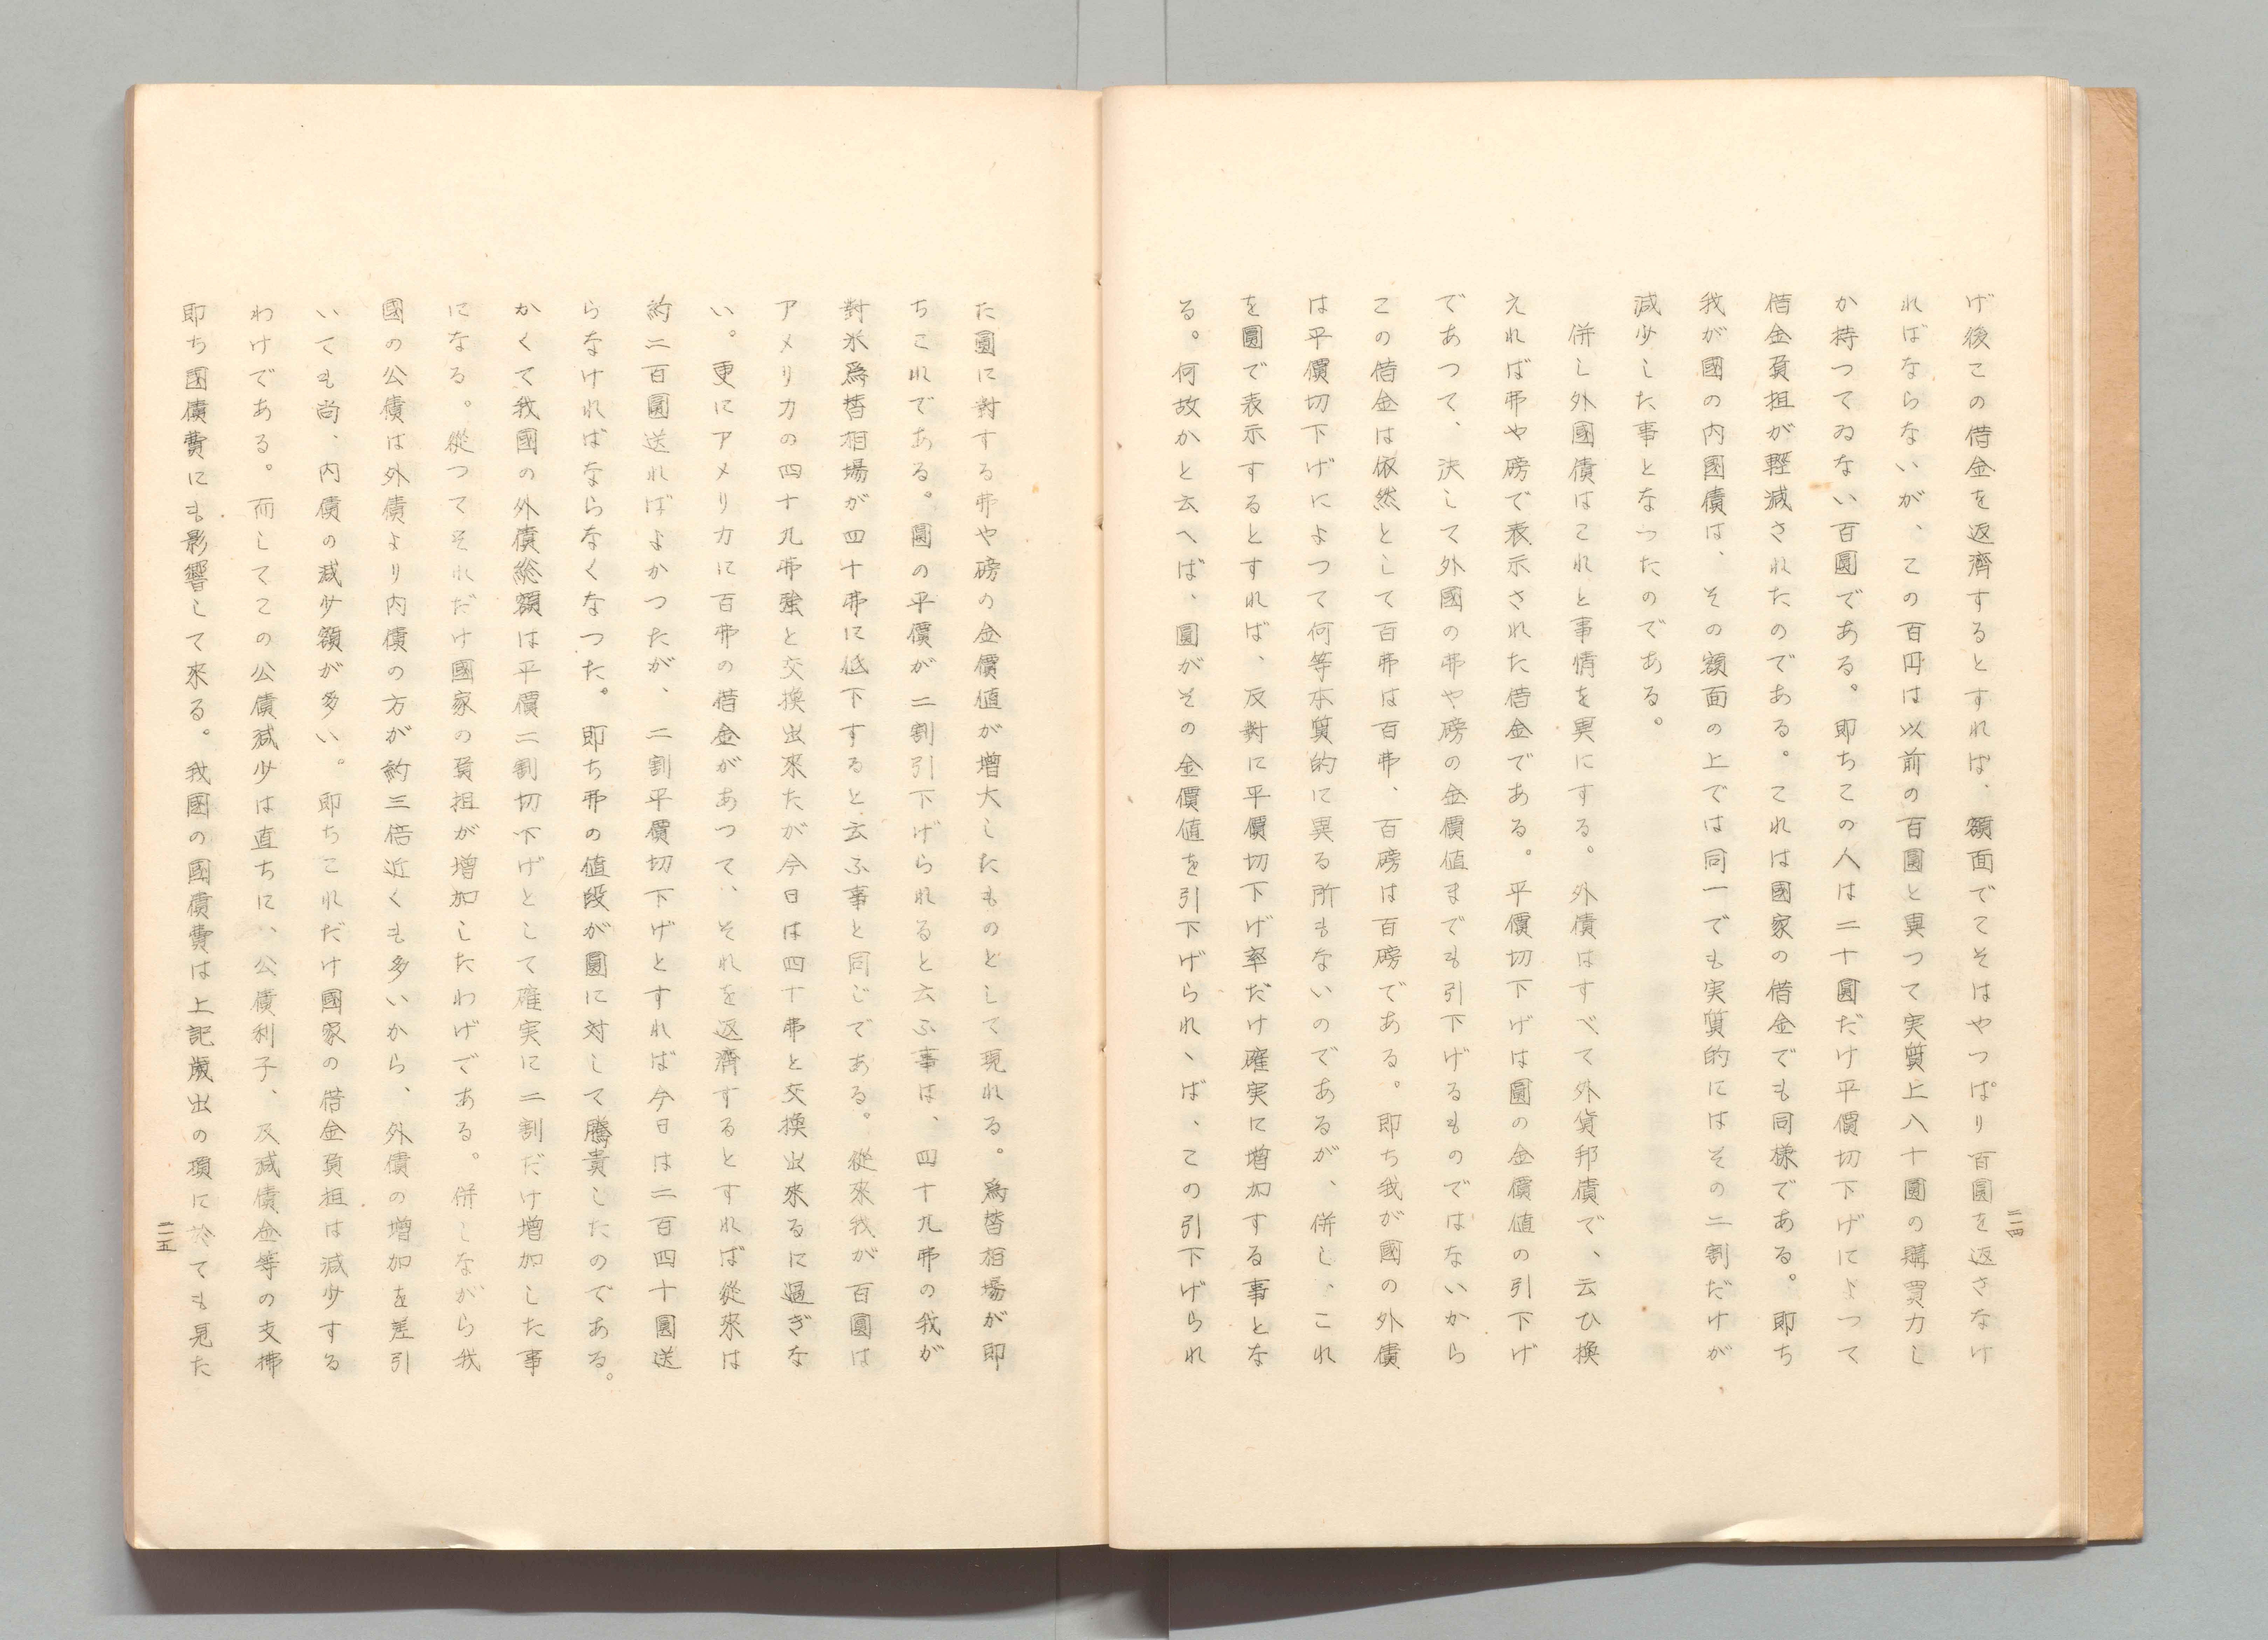 げ後この借金を返濟するとすれば、額面でこそはやつぱり百圓を返さなけ
ればならないが、この百円は以前の百圓と異つて実質上八十圓の購買力し
か持つてゐない百圓である。即ちこの人は二十圓だけ平價切下げによつて
借金負担が輕減されたのである。これは國家の借金でも同様である。即ち
我が國の内國債は、その額面の上では同一でも実質的にはその二割だけが
減少した事となつたのである。
併し外國債はこれと事情を異にする。外債はすべて外貨邦債で、云ひ換
えれば弗や磅で表示された借金である。平價切下げは圓の金價値の引下げ
であつて、決して外國の弗や磅の金價値までも引下げるものではないから
この借金は依然として百弗は百弗、百磅は百磅である。即ち我が國の外債
は平價切下げによつて何等本質的に異る所もないのであるが、併し、これ
を圓で表示するとすれば、反對に平價切下げ率だけ確実に増加する事とな
る。何故かと云へば、圓がその金價値を引下げられゝば、この引下げられ
二四
た圓に對する弗や磅の金價値が増大したものとして現れる。爲替相場が即
ちこれである。圓の平價が二割引下げられると云ふ事は、四十九弗の我が
對米爲替相場が四十弗に低下すると云ふ事と同じである。從來我が百圓は
アメリカの四十九弗強と交換出來たが今日は四十弗と交換出來るに過ぎな
い。更にアメリカに百弗の借金があつて、それを返濟するとすれば從來は
約二百圓送ればよかつたが、二割平價切下げとすれば今日は二百四十圓送
らなければならなくなつた。即ち弗の値段が圓に対して騰貴したのである。
かくて我國の外債総額は平價二割切下げとして確実に二割だけ増加した事
になる。從つてそれだけ國家の負担が増加したわけである。併しながら我
國の公債は外債より内債の方が約三倍近くも多いから、外債の増加を差引
いても尚、内債の減少額が多い。即ちこれだけ國家の借金負担は減少する
わけである。而してこの公債減少は直ちに、公債利子、及減債金等の支拂
即ち國債費にも影響して來る。我國の國債費は上記歳出の項に於ても見た
二五